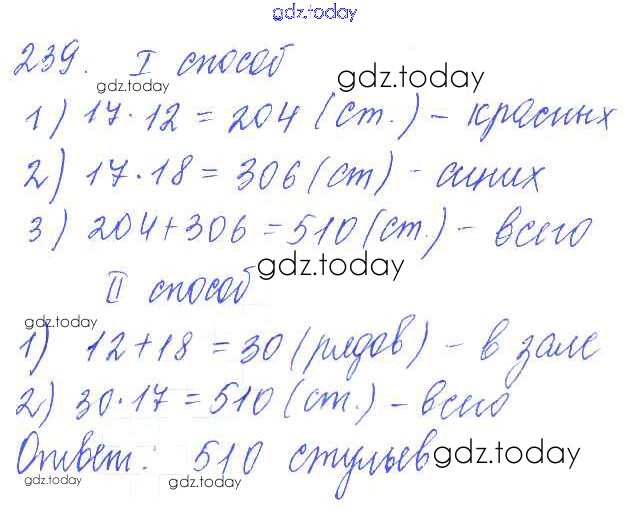 gdz.today
239. I способ
gdz.today
gdz.today
1) 17·12 = 204 (ст.) - красных
2) 17·18 = 306 (ст) - синих
3) 204+306 = 510 (ст.) - всего
gdz.today
II способ
gdz.today
1) 12+18 = 30 (рядов) - в зале
2) 30·17 = 510 (ст.) - всего
Ответ: 510 стульев
gdz.today
gdz.today
gdz.today